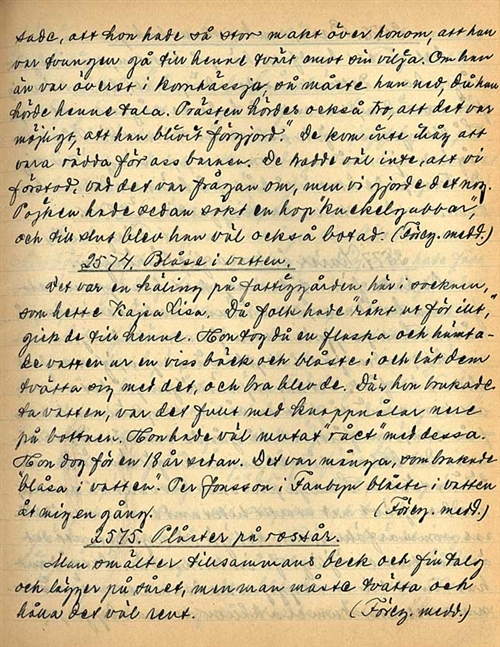 sade, att hon hade så stor makt över honom, att han
var tvungen gå till henne tvärt emot sin vilja. Om han
än var överst i kornhässja, så måste han ned, då han
hörde henne tala. Prästen hördes också tro, att det var
möjligt, att han blivit "förgjord." De kom inte ihåg att
vara rädda för ass barnen. De trodde väl inte, att vi
förstod, vad det var frågan om, men vi gjorde det nog.
Pojken hade sedan sökt en hop "kuckelgubbar",
och till slut blev han väl också botad. (Föreg. medd.)
2574. Blåse i vatten.
Det var en käling på fattiggården här i socknen,
som hette Kajsa Lisa. Då folk hade "råkt ut för illt,"
gick de till henne. Hon tog då en flaska och hämta-
de vatten ur en viss bäck och blåste i och lät dem
tvätta sig med det, och bra blev de. Där hon brukade
ta vatten, var det fullt med knappnålar nere
på bottnen. Hon hade väl mutat "rået" med dessa.
Hon dog för en 18 år sedan. Det var många, som brukade
"blåsa i vatten". Per Jonsson i Fanbyn blåste i vatten
åt mig en gång. (Föreg. medd.)
2575. Plåster på rossår.
Man smälter tillsammans beck och fin talg
och lägger på såret, men man måste tvätta och
hålla det väl rent. (Föreg. medd.)